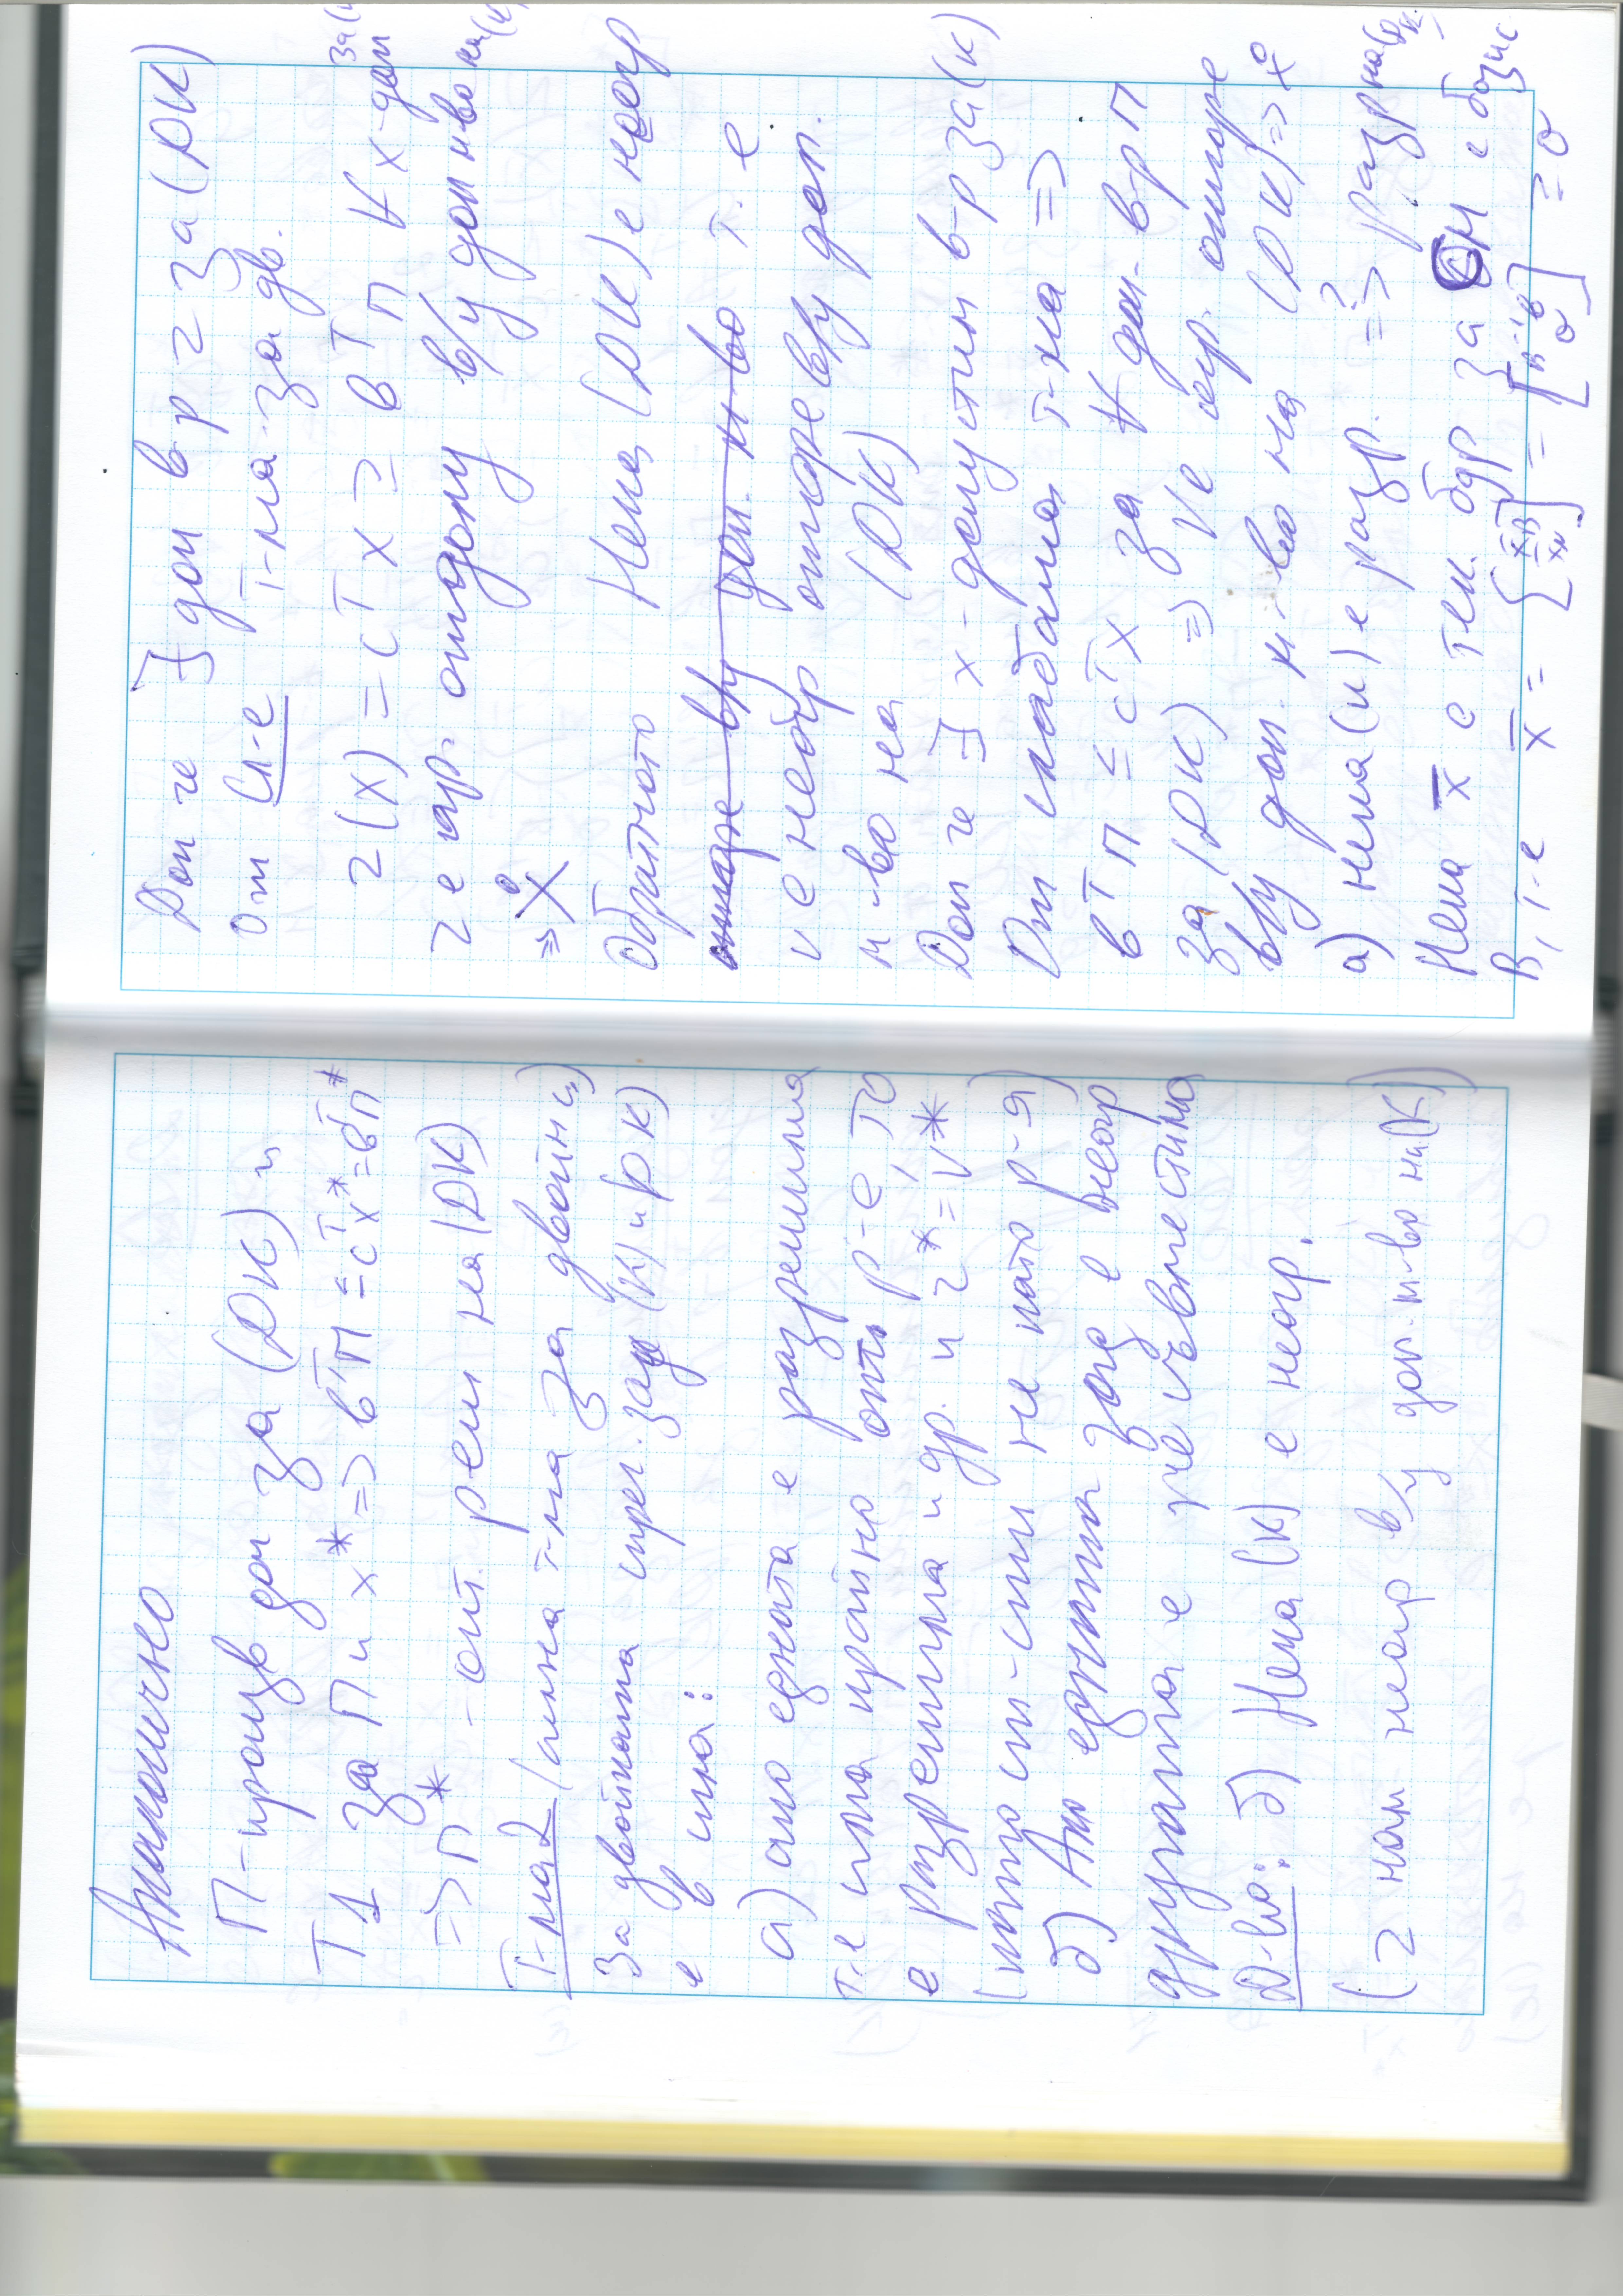 Аналогично
П - произв доп за (DK) и
Т1 за П и x* => bᵀП = cᵀx* = bᵀП*
=> П* - опт. реш на (DK)
Т-ма 2 (силна т-ма за двойнц)
За двойката спрег. зад (K) и (DK)
е в сила:
а) ако едната е разрешима
т.е има крайно опт р-е, то
е разрешима и др. и z* = v*
(което ст-сти не като р-я)
б) Ако едната зад е неогр
другата е несъвместима
Д-во: б) Нека (K) е неогр.
(z нам неогр в/у доп. м-во на (K))
Доп че ∃ доп в р г за (DK)
От сл-е Т-ма за дв.
z(x) = cᵀx ≥ bᵀП ∀ x-доп за (K)
z е огр. отдолу в/у доп мн-во на (K)
=> X
Обратното Нека (DK) е неогр
отгоре в/у доп. м-во т.е
v е неогр отгоре в/у доп.
м-во на (DK)
Доп че ∃ x - допустим в-р за (K)
От слабата т-ма =>
bᵀП ≤ cᵀx за ∀ доп. в-р П
за (DK) => v е огр. отгоре
в/у доп. м-во на (DK) => X
а) нека (K) е разр. =>? разр на (DK)
Нека x̄ е тек. бдр за СМ с базис
B, т.е x̄ = [x̄B x̄N] = [B⁻¹b 0] ≥ 0